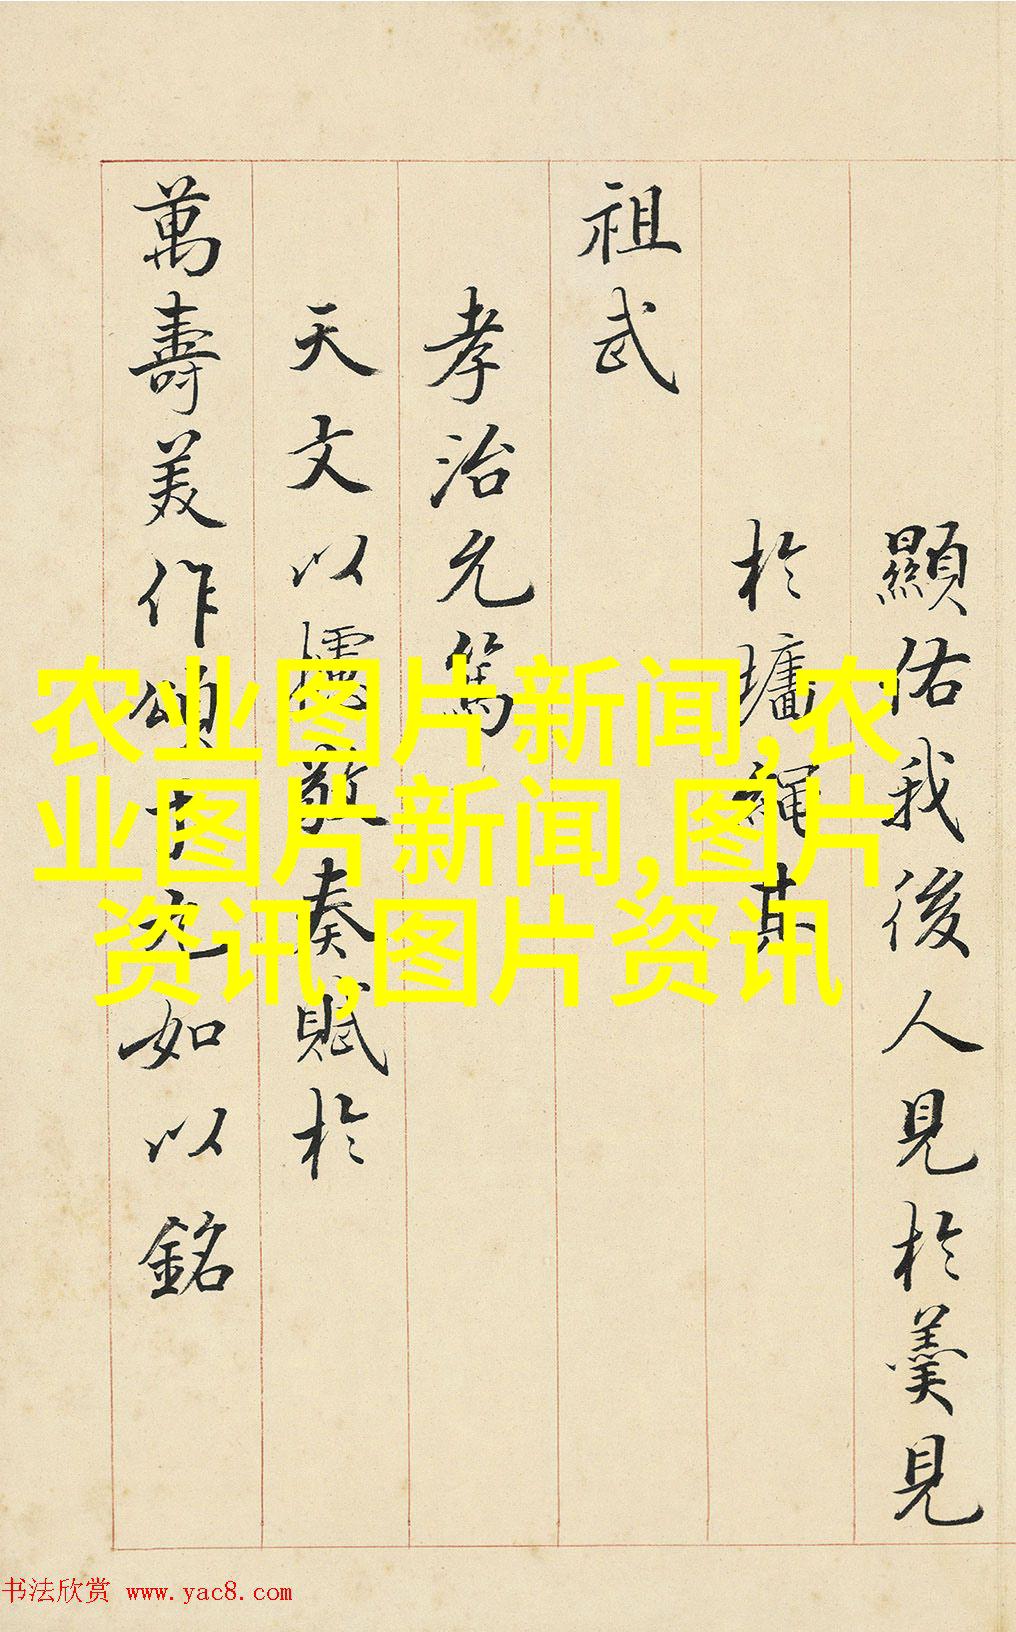 顯佑我後人見於羹見
於墻繩其
祖武
孝治允篤
天文以
奏賦於
萬壽美作頌
如以銘
农业图片新闻,农
业图片新闻,图片
资讯,图片资讯
书法欣赏 www.yac8.com